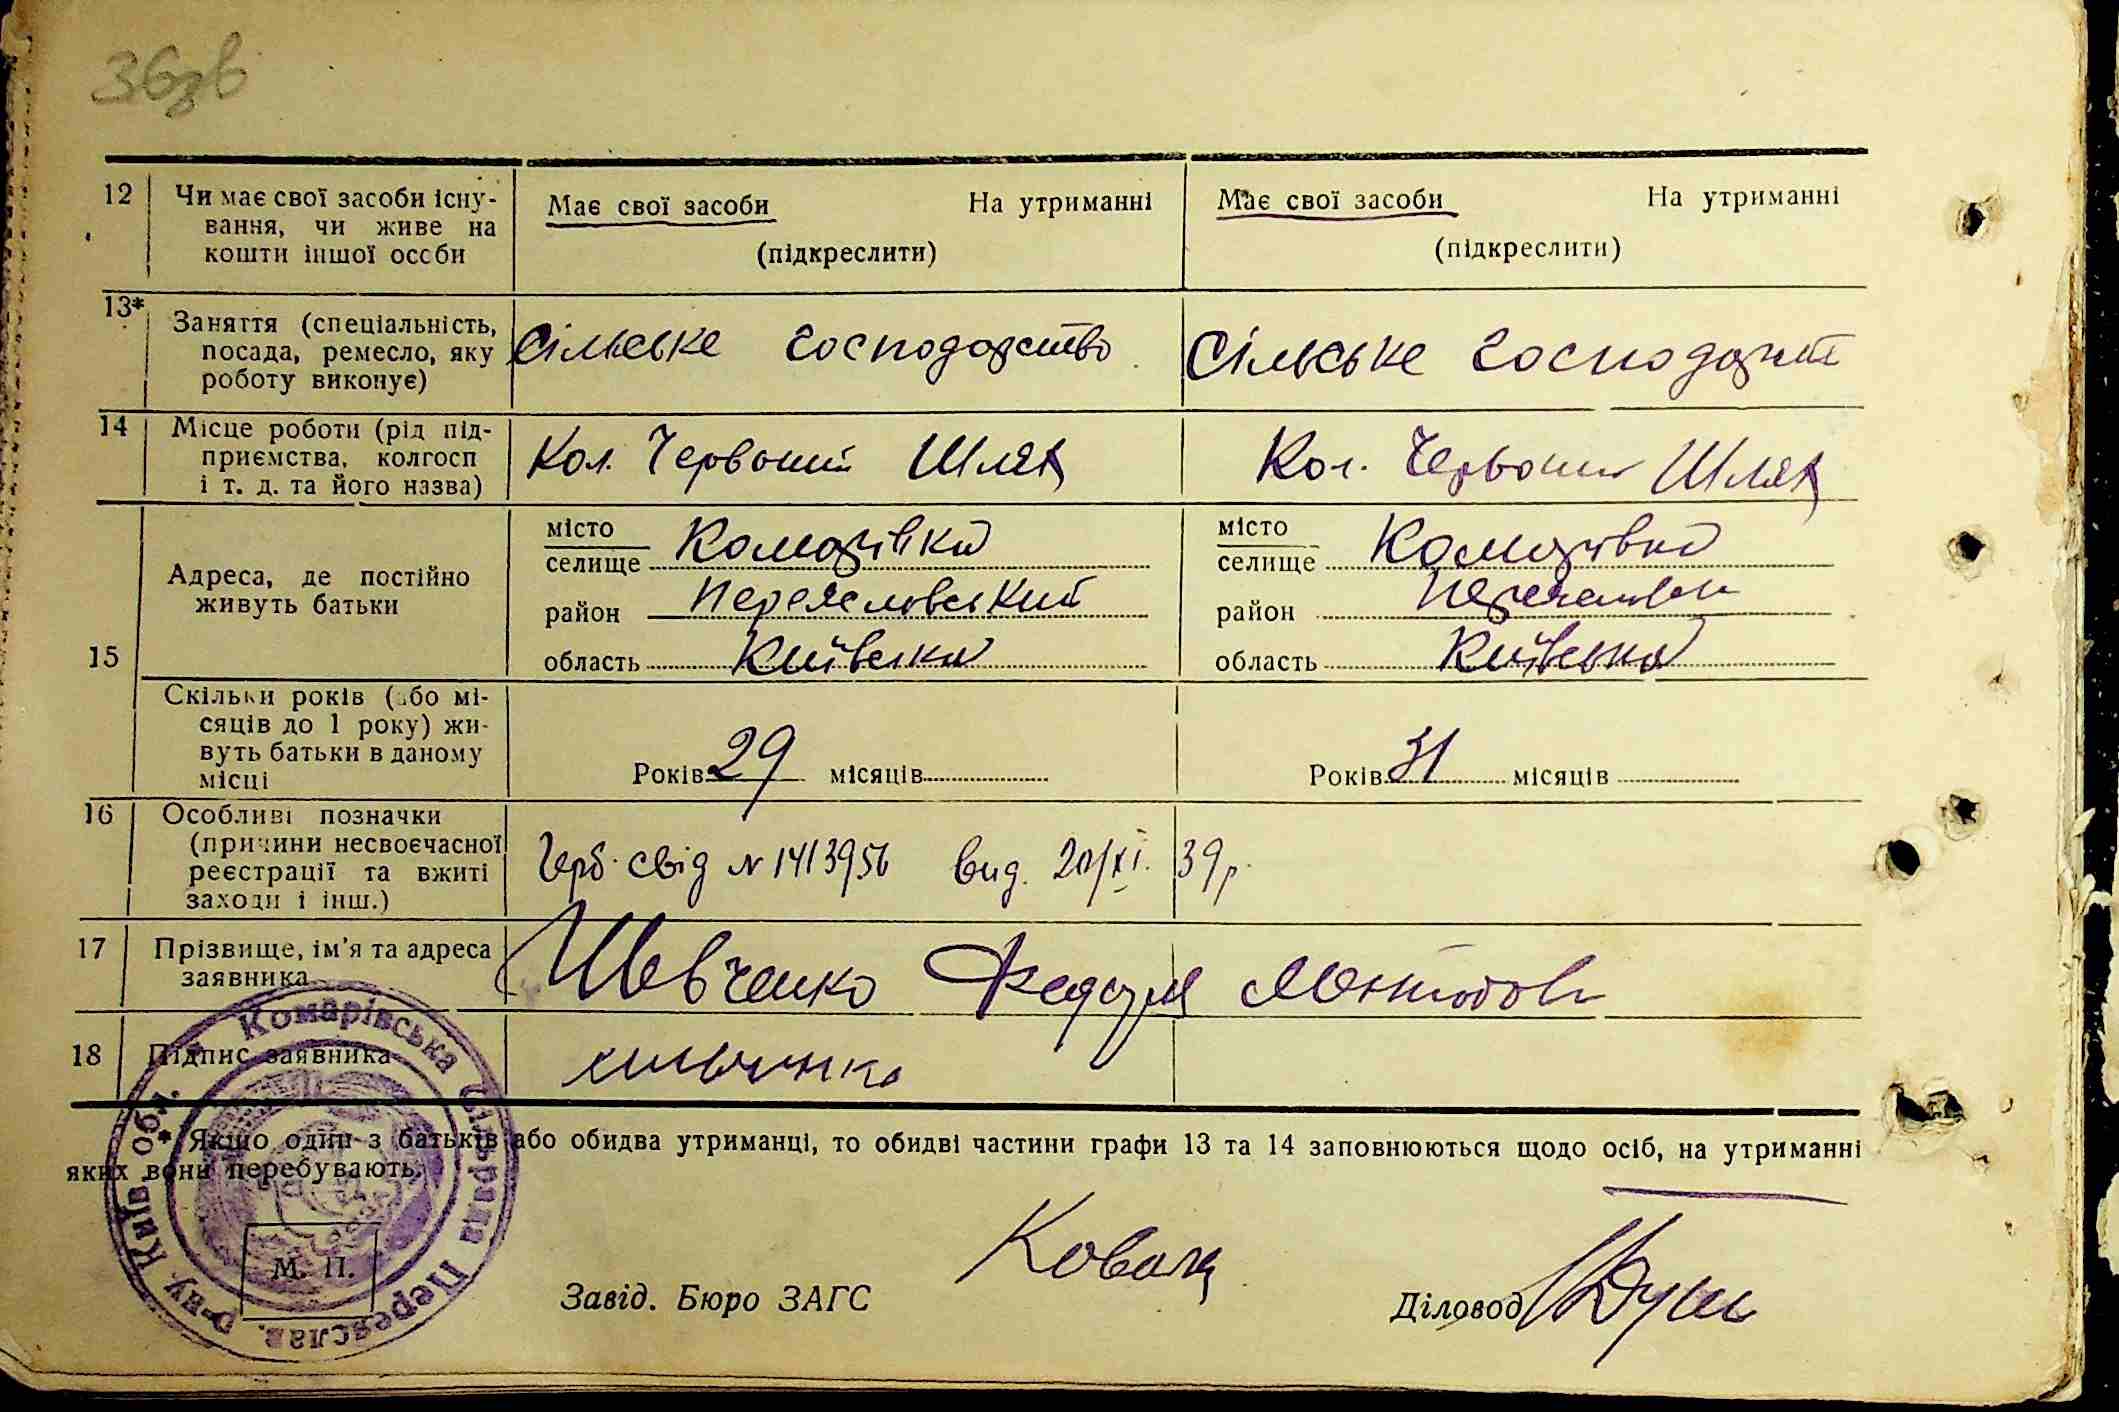 36зв
12 Чи має свої засоби існу- Має свої засоби На утриманні Має свої засоби На утриманні
вання, чи живе на
кошти іншої особи (підкреслити) (підкреслити)
13* Заняття (спеціальність,
посада, ремесло, яку Сільське господарство Сільське господарст
роботу виконує)
14 Місце роботи (рід під-
приємства, колгосп Кол. Червоний Шлях Кол. Червоний Шлях
і т. д. та його назва)
15 Адреса, де постійно
живуть батьки
місто
селище Комарівка
район Переяславський
область Київська
місто
селище Комарівка
район
область Київська
Скільки років (або мі-
сяців до 1 року) жи-
вуть батьки в даному
місці Років 29 місяців Років 31 місяців
16 Особливі позначки
(причини несвоєчасної
реєстрації та вжиті
заходи і інш.)
Герб. свід № 1413956 вид. 20/XI. 39 р.
17 Прізвище, ім'я та адреса
заявника Шевченко Федора
18 Підпис заявника
* Якщо один з батьків або обидва утриманці, то обидві частини графи 13 та 14 заповнюються щодо осіб, на утриманні
яких вони перебувають.
М. П.
Завід. Бюро ЗАГС
Діловод
Комарівська Сільрада Переяслав. р-ну, Київ. обл.